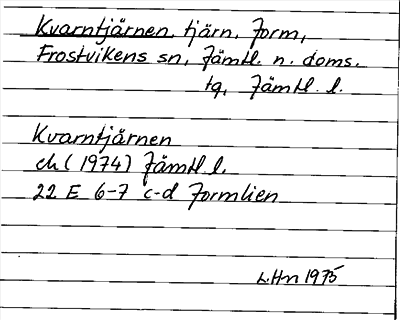 Kvarntjärnen, tjärn, Jorm,
Frostvikens sn, Jämtl. n. doms.
tg, Jämtl. l.
Kvarntjärnen
ek (1974) Jämtl. l.
22 E 6-7 c-d Jormlien
L.Hn 1975